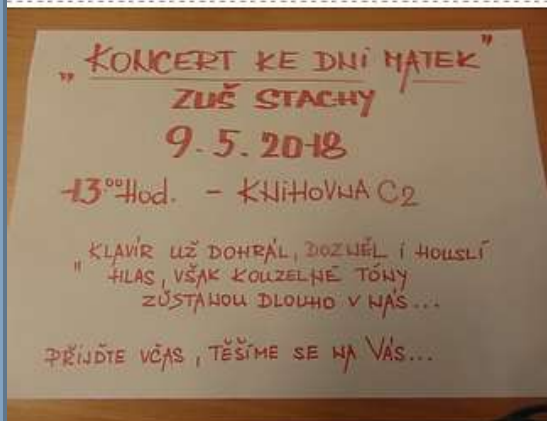 „KONCERT KE DNI MATEK”
ZUŠ STACHY
9.5.2018
13⁰⁰Hod. - KNIHOVNA C2
„KLAVÍR UŽ DOHRÁL, DOZNĚL I HOUSLÍ
HLAS, VŠAK KOUZELNÉ TÓNY
ZŮSTANOU DLOUHO V NÁS...
PŘIJĎTE VČAS, TĚŠÍME SE NA VÁS...